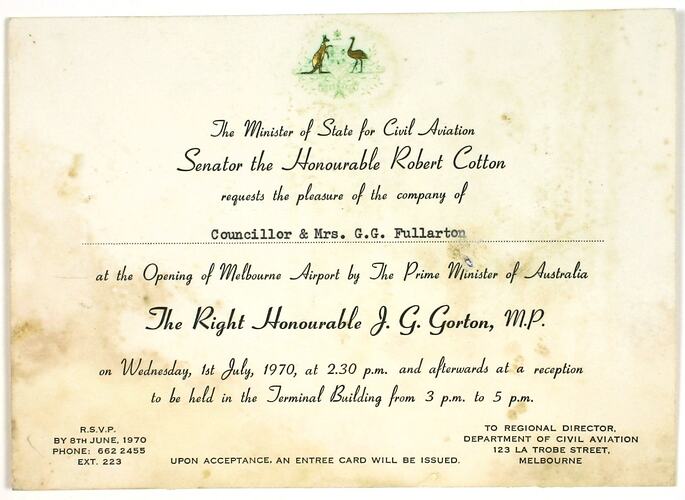 The Minister of State for Civil Aviation
Senator the Honourable Robert Cotton
requests the pleasure of the company of
Councillor & Mrs. G.G. Fullarton
at the Opening of Melbourne Airport by The Prime Minister of Australia
The Right Honourable J. G. Gorton, M.P.
on Wednesday, 1st July, 1970, at 2.30 p.m. and afterwards at a reception
to be held in the Terminal Building from 3 p.m. to 5 p.m.
R.S.V.P.
BY 8TH JUNE, 1970
PHONE: 662 2455
EXT. 223
UPON ACCEPTANCE, AN ENTREE CARD WILL BE ISSUED.
TO REGIONAL DIRECTOR,
DEPARTMENT OF CIVIL AVIATION
123 LA TROBE STREET,
MELBOURNE